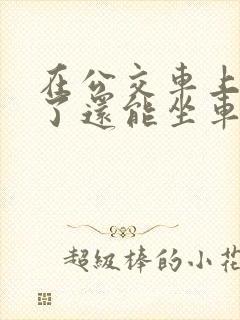 在公交車上
了還能坐車
超級棒的小花